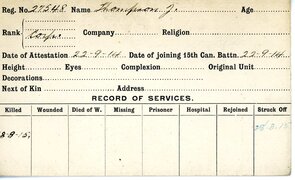 Reg. No. 27548 Name Thompson J. Age
Rank Corp. Company Religion
Date of Attestation 22-9-14 Date of joining 15th Can. Battn. 22-9-14
Height Eyes Complexion Original Unit
Decorations
Next of Kin Address
RECORD OF SERVICES.
Killed Wounded Died of W. Missing Prisoner Hospital Rejoined Struck Off
8-8-15, 28-8-15